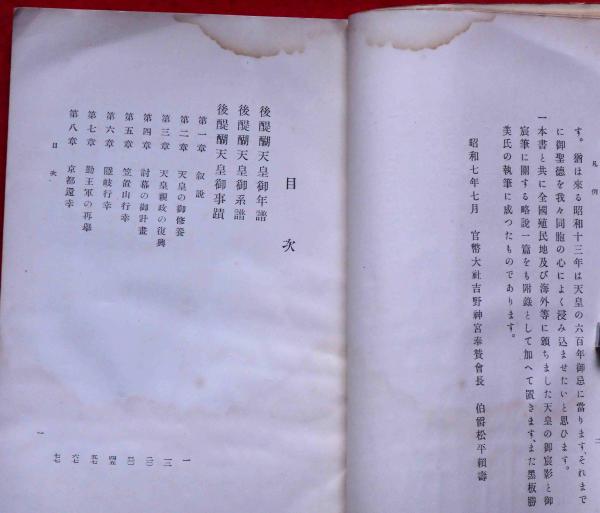 凡例
す。猶ほ來る昭和十三年は天皇の六百年御忌に當ります、それまで
に御聖德を我々同胞の心によく浸み込ませたいと思ひます。
一本書と共に全國殖民地及び海外等に頒ちました天皇の御宸影と御
宸筆に關する略說一篇をも附錄として加へて置きます、また黑板勝
美氏の執筆に成つたものであります。
昭和七年七月 官幣大社吉野神宮奉贊會長 伯爵松平賴壽
目次
後醍醐天皇御年譜
後醍醐天皇御系譜
後醍醐天皇御事蹟
第一章 叙說 一
第二章 天皇の御修養
第三章 天皇親政の復興
第四章 討幕の御計畫
第五章 笠置山行幸
第六章 隱岐行幸
第七章 勤王軍の再擧 六七
第八章 京都還幸 七七
目次
一